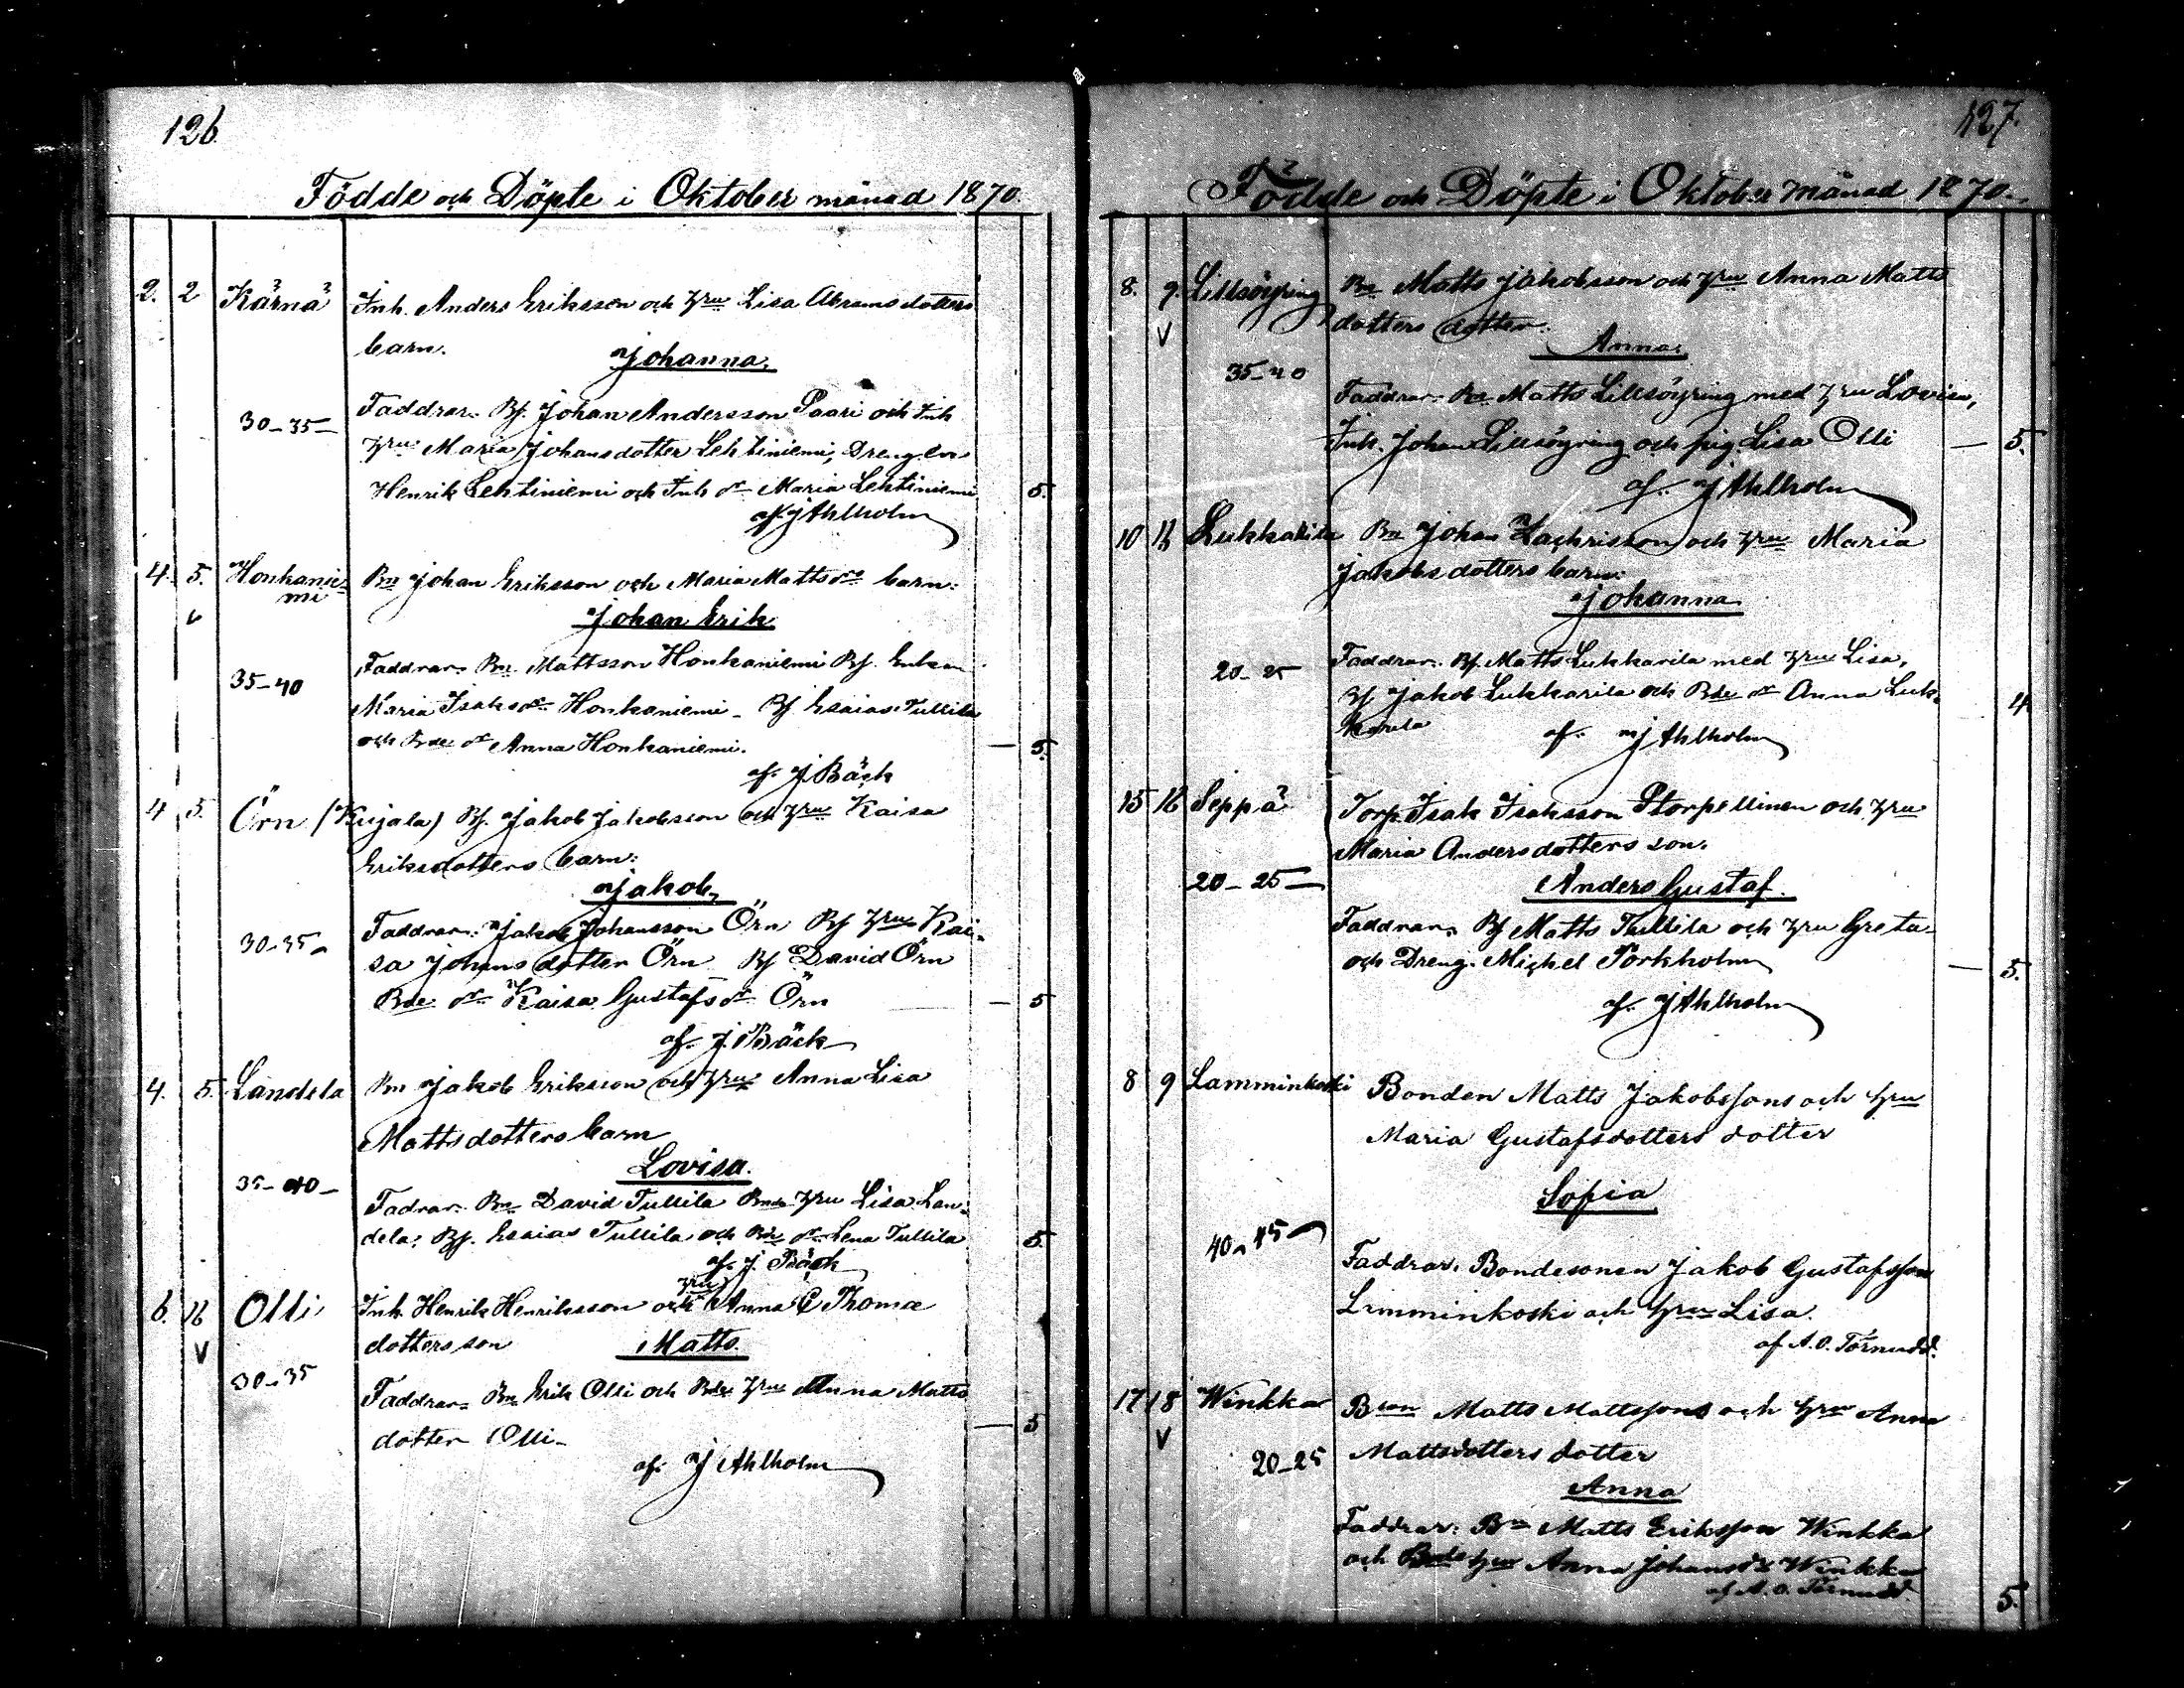 126.
Födde och Döpte i Oktober månad 1870
2. 2 Kärnä Inh. Anders Eriksson och hru Lisa Abramsdotters
barn.
Johanna.
30-35- Faddrar. Bs. Johan Andersson Saari och Inh
hru Maria Johansdotter Lehtiniemi, Dreng
Henrik Lehtiniemi och Inh dr Maria Lehtiniemi 5.
af J Ahlholm
4. 5. Honkanie= Bn Johan Eriksson och Maria Matts drs barn:
mi
Johan Erik
Faddrar. Bn. Mattsson Honkaniemi Bs. Enkan
35-40
Maria Isaks dr Honkaniemi - Bs Esaias Tullila
och Bde dr Anna Honkaniemi. — 5.
af J Bäck
4 5. Örn (Kujala) Bs. Jakob Jakobsson och hru Kaisa
Eriksdotters barn:
Jakob,
30-35- Faddrar: Jakob Johansson Örn Bs hru Kai-
sa Johansdotter Örn Bs David Örn
Bde dr Kaisa Gustafs dr Örn — 5
af J. Bäck
4. 5. Landela Bn Jakob Eriksson och hru Anna Lisa
Mattsdotters barn
Lovisa.
35-40- Fadrar. Bn David Tullila Bnde hru Lisa Lan-
dela, Bs. Esaias Tullila och Bde dr Lena Tullila 5.
af J. Bäck
hru
6. 16 Olli Inh Henrik Henriksson och Anna C Thomæ
V dotters son Matts.
30-35 Faddrar. Bn Erik Olli och Bde hru Anna Matts
dotter Olli- — 5
af J Ahlholm
127.
Födde och Döpte i Oktober månad 1870.
8. 9. Lillsöyring Bn Matts Jakobsson och hru Anna Matts
V dotters dotter.
Anna.
35-40
Faddrar. Bn Matts Lillsöyring med hru Lovisa,
Inh. Johan Lillsöyring och pig. Lisa Olli — 5.
af J Ahlholm
10 16 Lukkarila Bn Johan Zachrisson och hru Maria
Jakobsdotters barn:
Johanna.
20-25 Faddrar. Bs. Matts Lukkarila med hru Lisa,
Bs Jakob Lukkarila och Bde dr Anna Luk- 4
karila af J Ahlholm
15 16 Seppä Torp. Isak Isaksson Storpellinen och hru
Maria Andersdotters son.
20-25- Anders Gustaf.
Faddrar. Bs Matts Tullila och hru Greta
och Dreng. Michel Porkholm — 5.
af J Ahlholm
8 9 Lamminkoski Bonden Matts Jakobssons och hru
Maria Gustafsdotters dotter
Sofia
40-45-
Faddrar. Bondesonen Jakob Gustafsson
Lamminkoski och hru Lisa.
af A. O. Törnudd.
17 18 Winkka Bson Matts Mattssons och hru Anna
V
20-25 Mattsdotters dotter
Anna
Faddrar: Bn Matts Eriksson Winkka
och Bde hru Anna Johans dr Winkka
af A. O. Törnudd. 5.